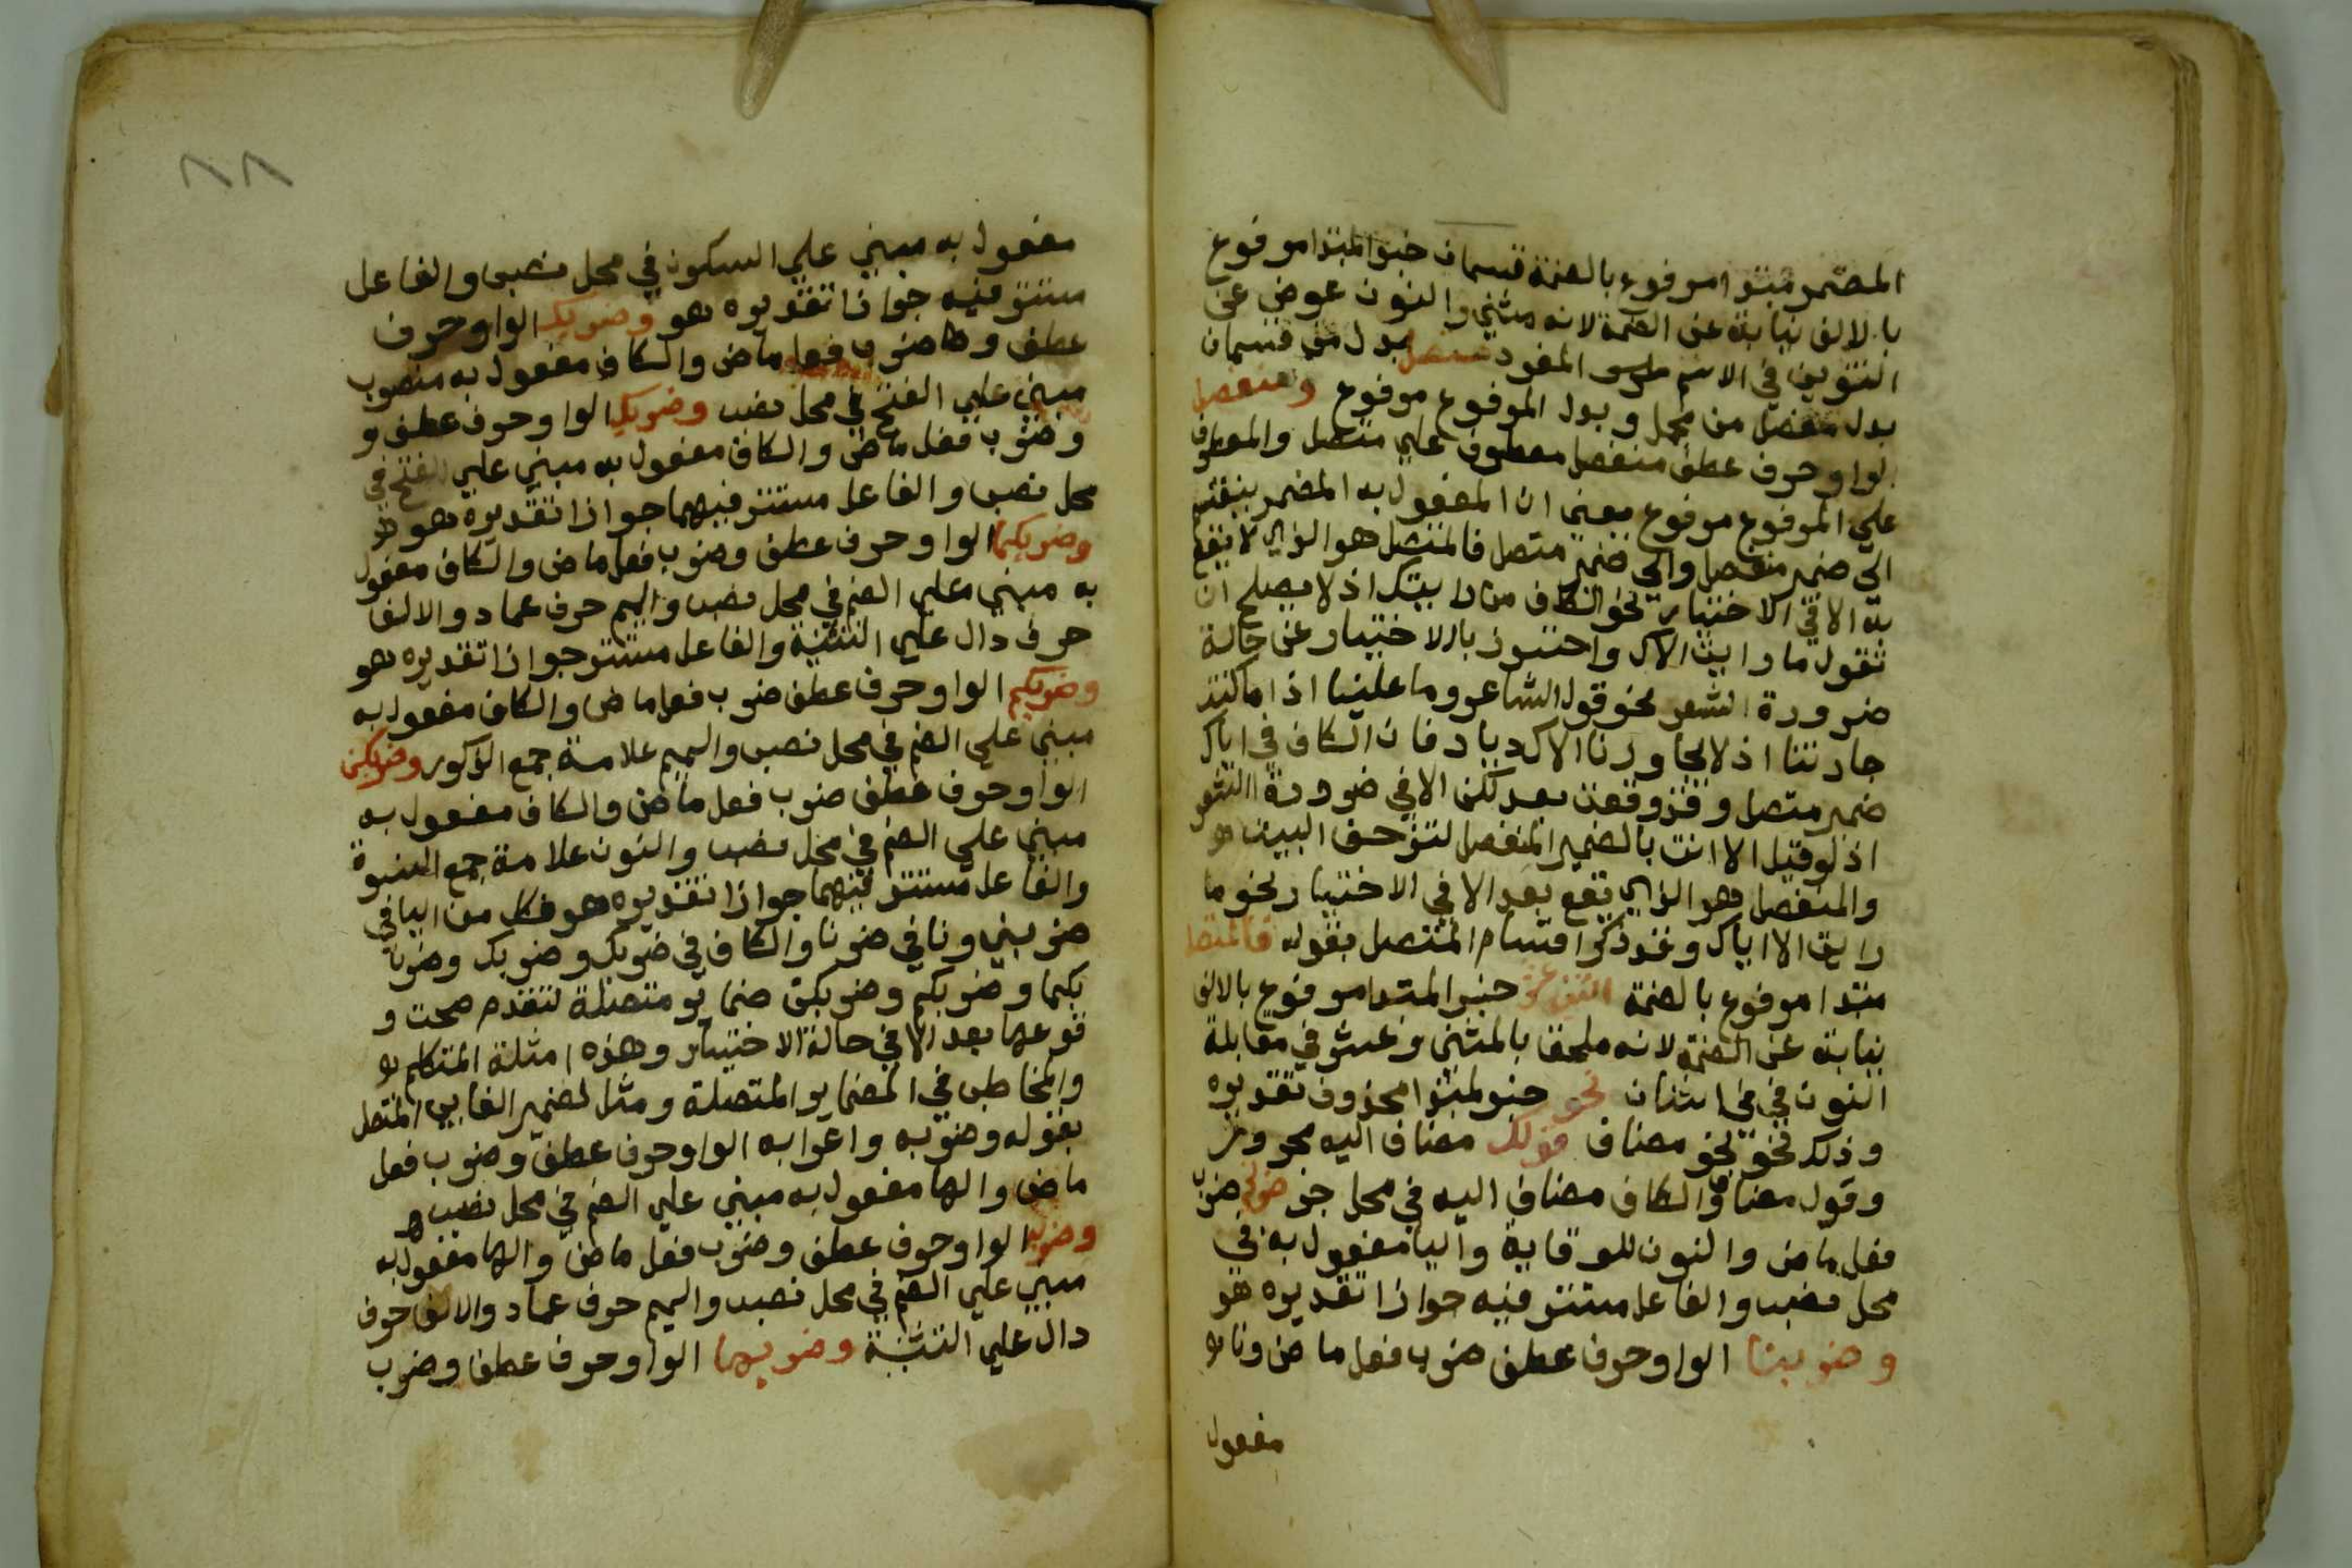 المضمر مبتدا مرفوع بالضمة قسمان خبر المبتدا مرفوع
بالالف نيابة عن الضمة لانه مثني والنون عوض عن
التنوين في الاسم المفرد متصل بدل من قسمان
بدل مفصل من مجمل وبدل المرفوع مرفوع ومنفصل
الواو حرف عطف منفصل معطوف علي متصل والمعطوف
علي المرفوع مرفوع معني ان المفعول به المضمر ينقسم
الي ضمير منفصل والي ضمير متصل فالمتصل هو الذي لا يقع
بعد الا في الاختيار نحو الكاف من رايتك اذ لا يصلح ان
تقول ما رايت الاك واحترز بالاختيار عن حالة
ضرورة الشعر نحو قول الشاعر وما علينا اذا ما كنت
جارتنا اذ لا يجاورنا الاك ديار فان الكاف في اياك
ضمير متصل وقد وقعت بعد لكن الا في ضرورة الشعر
اذ لو قيل الا انت بالضمير المنفصل لتزحف البيت
والمنفصل هو الذي يقع بعد الا في الاختيار نحو ما
رايت الا اياك وقد ذكر اقسام المتصل بقوله فالمتصل
مبتدا مرفوع بالضمة اثني عشر خبر المبتدا مرفوع بالالف
نيابة عن الضمة لانه ملحق بالمثني وعشر في مقابلة
النون في في اثنان نحو خبر لمبتدا محذوف تقديره
وذلك نحو نحو مضاف قولك مضاف اليه مجرور
وقول مضاف والكاف مضاف اليه في محل جر ضربني ضرب
فعل ماض والنون للوقاية واليا مفعول به في
محل نصب والفاعل مستتر فيه جوازا تقديره هو
وضربنا الواو حرف عطف ضرب فعل ماض ونا
مفعول
٨٨
مفعول به مبني علي السكون في محل نصب والفاعل
مستتر فيه جوازا تقديره هو وضربك الواو حرف
عطف وضرب فعل ماض والكاف مفعول به منصوب
مبني علي الفتح في محل نصب وضربك الواو حرف عطف و
وضرب فعل ماض والكاف مفعول به مبني علي الفتح في
محل نصب والفاعل مستتر فيهما جوازا تقديره هو
وضربكما الواو حرف عطف وضرب فعل ماض والكاف مفعول
به مبني علي الضم في محل نصب والميم حرف عماد والالف
حرف دال علي التثنية والفاعل مستتر جوازا تقديره هو
وضربكم الواو حرف عطف ضرب فعل ماض والكاف مفعول به
مبني علي الضم في محل نصب والميم علامة جمع الذكور وضربكن
الواو حرف عطف ضرب فعل ماض والكاف مفعول به
مبني علي الضم في محل نصب والنون علامة جمع النسوة
والفاعل مستتر فيهما جوازا تقديره هو فكل من اليا في
ضربني ونا في ضربنا والكاف في ضربك وضربك وضر
بكما وضربكم وضربكن ضماير متصلة لتقدم صحت و
قوعها بعد الا في حالة الاختيار وهذه امثلة المتكلم
والمخاطب في الضماير المتصلة ومثل لضمير الغايب المتصل
بقوله وضربه واعرابه الواو حرف عطف وضرب فعل
ماض والها مفعول به مبني علي الضم في محل نصب
الواو حرف عطف وضرب فعل ماض والها مفعول به
مبني علي الضم في محل نصب والميم حرف عماد والالف حرف
دال علي التثنية وضربهما الواو حرف عطف وضرب